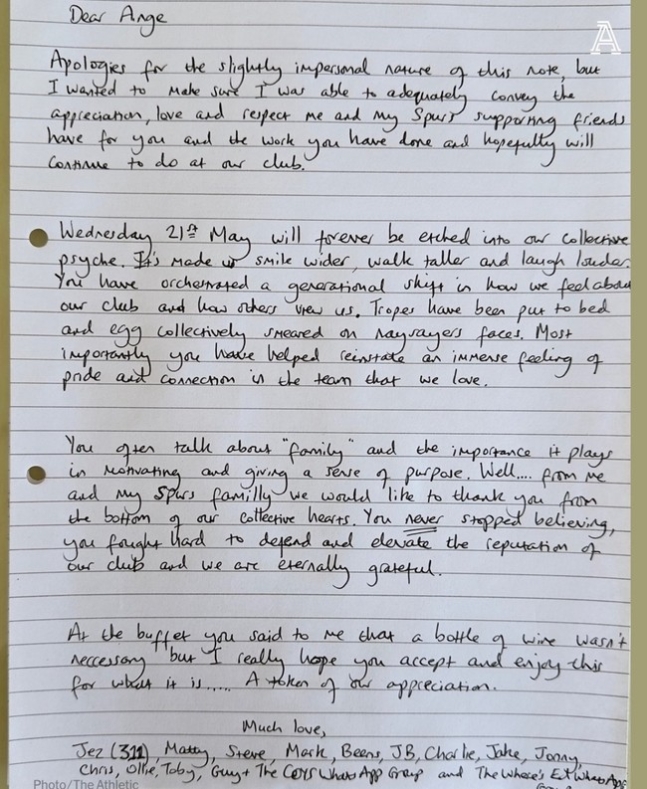 Dear Ange
A
Apologies for the slightly impersonal nature of this note, but
I wanted to make sure I was able to adequately convey the
appreciation, love and respect me and my Spurs supporting friends
have for you and the work you have done and hopefully will
continue to do at our club.
Wednesday 21st May will forever be etched into our collective
psyche. It's made us smile wider, walk taller and laugh louder.
You have orchestrated a generational shift in how we feel about
our club and how others view us. Tropes have been put to bed
and egg collectively smeared on naysayers faces. Most
importantly you have helped reinstate an immense feeling of
pride and connection in the team that we love.
You often talk about "family" and the importance it plays
in motivating and giving a sense of purpose. Well.... from me
and my Spurs familly we would like to thank you from
the bottom of our collective hearts. You never stopped believing,
you fought hard to defend and elevate the reputation of
our club and we are eternally grateful.
At the buffet you said to me that a bottle of wine wasn't
neccessary but I really hope you accept and enjoy this
for what it is..... A token of our appreciation.
Much love,
Jez (311) Matty, Steve, Mark, Beens, JB, Charlie, Jake, Jonny,
Chris, Ollie, Toby, Guy + The COYS WhatsApp Group and The Whose's Ext WhatsApp
Photo/The Athletic